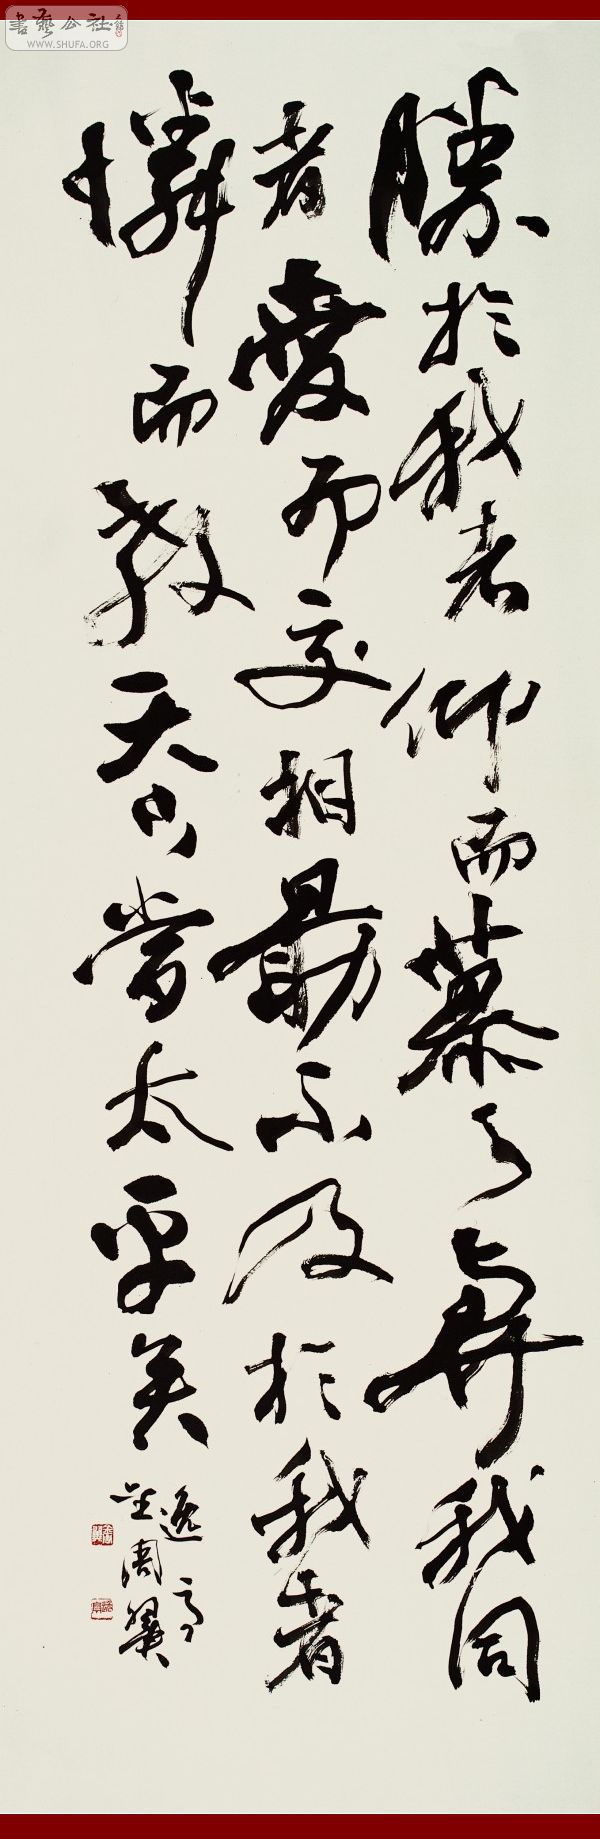 書藝公社
WWW.SHUFA.ORG
勝於我者仰而慕之與我同
者愛而交相勗不及於我者
憐而教天下當太平矣
逸亭
周翼